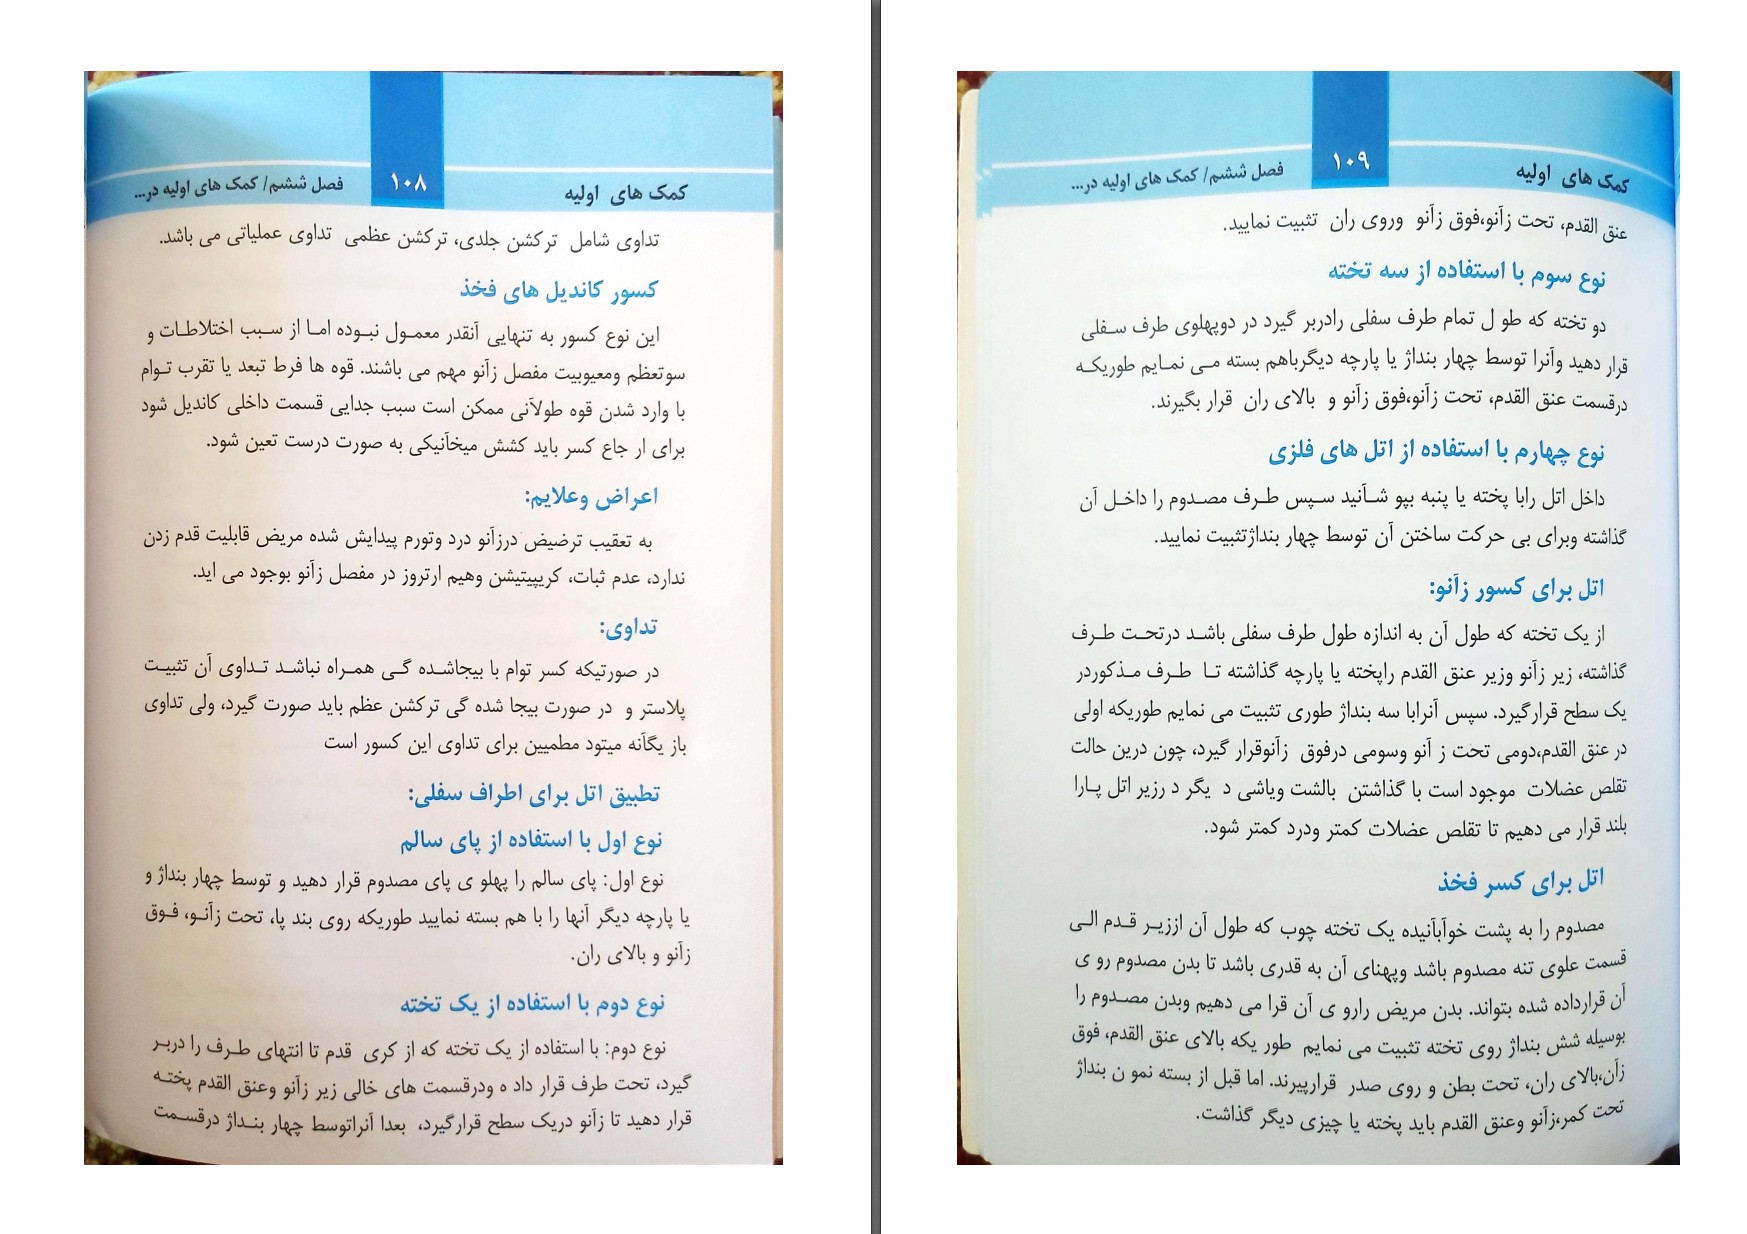 کمک های اولیه
۱۰۸
فصل ششم/ کمک های اولیه در...
تداوی شامل ترکشن جلدی، ترکشن عظمی تداوی عملیاتی می باشد.
کسور کاندیل های فخذ
این نوع کسور به تنهایی آنقدر معمول نبوده اما از سبب اختلاطات و
سوتعظم ومعیوبیت مفصل زآنو مهم می باشند. قوه ها فرط تبعد یا تقرب توام
با وارد شدن قوه طولآنی ممکن است سبب جدایی قسمت داخلی کاندیل شود
برای ار جاع کسر باید کشش میخآنیکی به صورت درست تعین شود.
اعراض وعلایم:
به تعقیب ترضیض درزآنو درد وتورم پیدایش شده مریض قابلیت قدم زدن
ندارد، عدم ثبات، کریپیتیشن وهیم ارتروز در مفصل زآنو بوجود می اید.
تداوی:
در صورتیکه کسر توام با بیجاشده گی همراه نباشد تداوی آن تثبیت
پلاستر و در صورت بیجا شده گی ترکشن عظم باید صورت گیرد، ولی تداوی
باز یگآنه میتود مطمیین برای تداوی این کسور است
تطبیق اتل برای اطراف سفلی:
نوع اول با استفاده از پای سالم
نوع اول: پای سالم را پهلو ی پای مصدوم قرار دهید و توسط چهار بنداژ و
یا پارچه دیگر آنها را با هم بسته نمایید طوریکه روی بند پا، تحت زآنو، فوق
زآنو و بالای ران.
نوع دوم با استفاده از یک تخته
نوع دوم: با استفاده از یک تخته که از کری قدم تا انتهای طرف را دربر
گیرد، تحت طرف قرار داد ه ودرقسمت های خالی زیر زآنو وعنق القدم پخته
قرار دهید تا زآنو دریک سطح قرارگیرد، بعدا آنراتوسط چهار بنداژ درقسمت
کمک های اولیه
۱۰۹
فصل ششم/ کمک های اولیه در...
عنق القدم، تحت زآنو،فوق زآنو وروی ران تثبیت نمایید.
نوع سوم با استفاده از سه تخته
دو تخته که طو ل تمام طرف سفلی رادربر گیرد در دوپهلوی طرف سفلی
قرار دهید وآنرا توسط چهار بنداژ یا پارچه دیگرباهم بسته می نمایم طوریکه
درقسمت عنق القدم، تحت زآنو،فوق زآنو و بالای ران قرار بگیرند.
نوع چهارم با استفاده از اتل های فلزی
داخل اتل رابا پخته یا پنبه بپو شآنید سپس طرف مصدوم را داخل آن
گذاشته وبرای بی حرکت ساختن آن توسط چهار بنداژتثبیت نمایید.
اتل برای کسور زآنو:
از یک تخته که طول آن به اندازه طول طرف سفلی باشد درتحت طرف
گذاشته، زیر زآنو وزیر عنق القدم راپخته یا پارچه گذاشته تا طرف مذکوردر
یک سطح قرارگیرد. سپس آنرابا سه بنداژ طوری تثبیت می نمایم طوریکه اولی
در عنق القدم،دومی تحت ز آنو وسومی درفوق زآنوقرار گیرد، چون درین حالت
تقلص عضلات موجود است با گذاشتن بالشت ویاشی د یگر د رزیر اتل پارا
بلند قرار می دهیم تا تقلص عضلات کمتر ودرد کمتر شود.
اتل برای کسر فخذ
مصدوم را به پشت خوآبآنیده یک تخته چوب که طول آن اززیر قدم الی
قسمت علوی تنه مصدوم باشد وپهنای آن به قدری باشد تا بدن مصدوم رو ی
آن قرارداده شده بتواند. بدن مریض رارو ی آن قرا می دهیم وبدن مصدوم را
بوسیله شش بنداژ روی تخته تثبیت می نمایم طور یکه بالای عنق القدم، فوق
زآن،بالای ران، تحت بطن و روی صدر قراریپرند. اما قبل از بسته نمو ن بنداژ
تحت کمر،زآنو وعنق القدم باید پخته یا چیزی دیگر گذاشت.